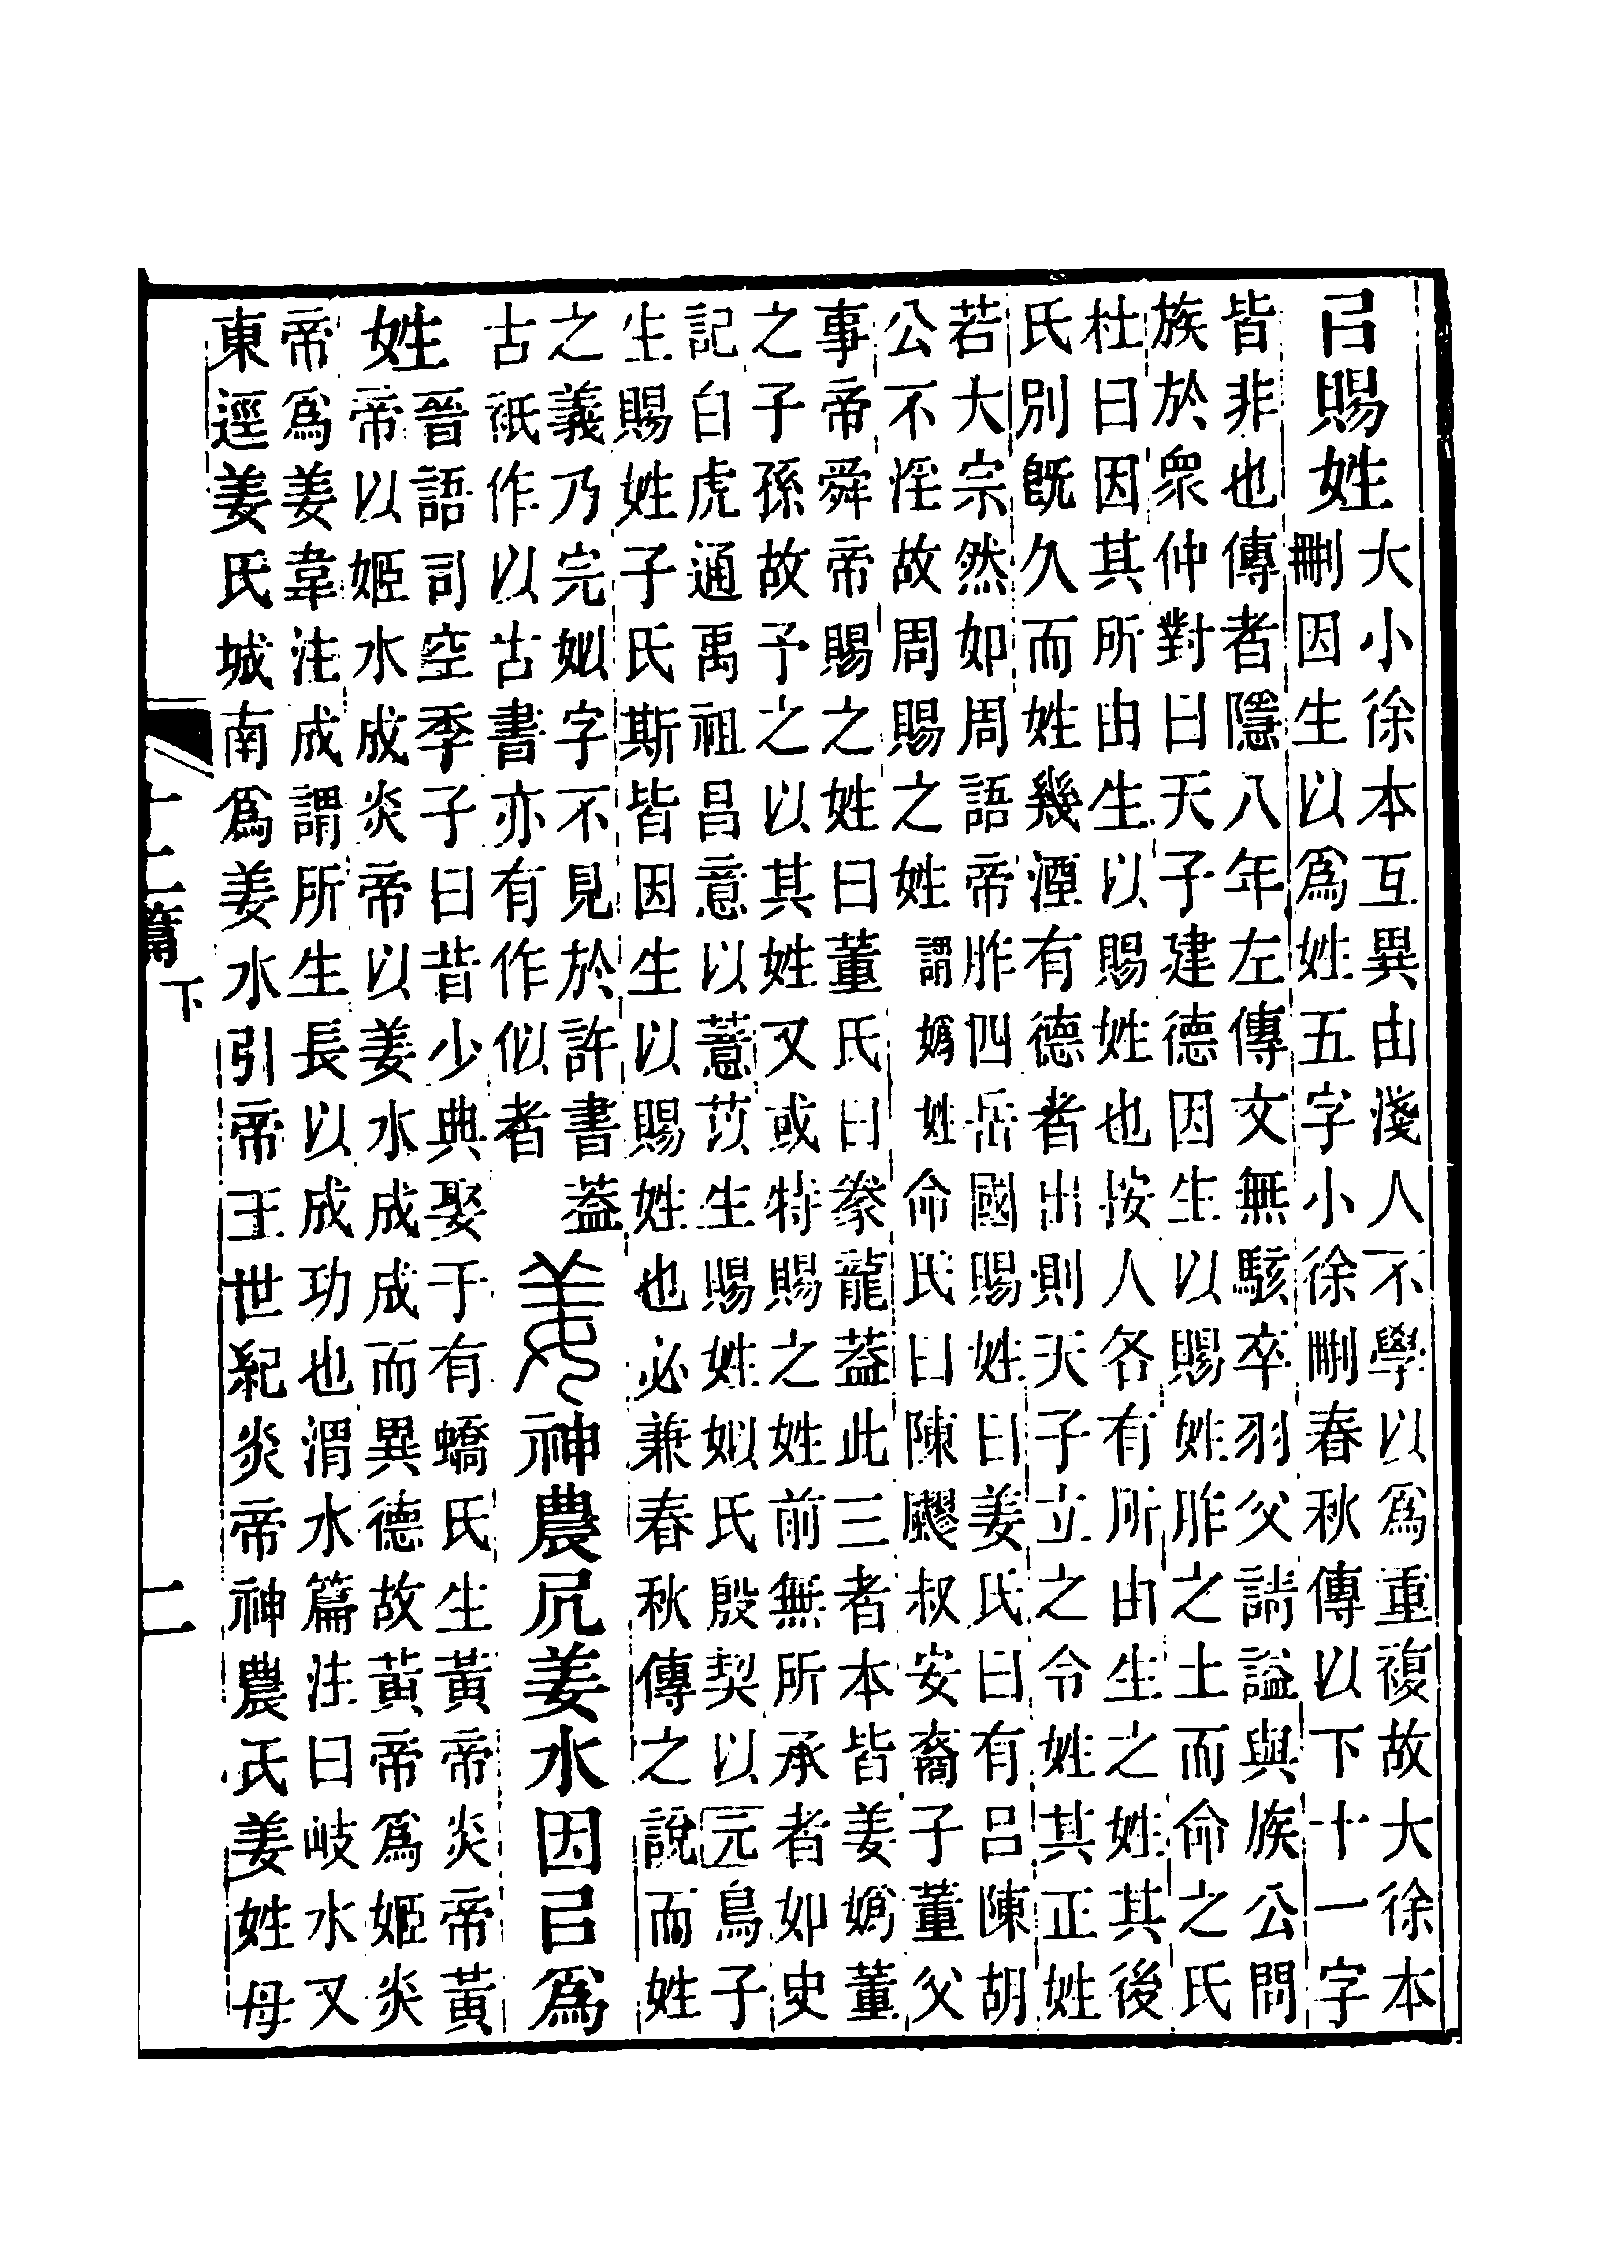 㠯賜姓大小徐本互異由淺人不學以爲重複故大徐本
刪因生以爲姓五字小徐刪春秋傳以下十一字
皆非也傳者隱八年左傳文無駭卒羽父請謚與族公問
族於衆仲對曰天子建德因生以賜姓胙之土而命之氏
杜曰因其所由生以賜姓也按人各有所由生之姓其後
氏別旣久而姓幾湮有德者出則天子立之令姓其正姓
若大宗然如周語帝胙四岳國賜姓曰姜氏曰有呂陳胡
公不淫故周賜之姓謂嬀姓命氏曰陳飂叔安裔子董父
事帝舜帝賜之姓曰董氏曰豢龍葢此三者本皆姜嬀董
之子孫故予之以其姓又或特賜之姓前無所承者如史
記白虎通禹祖昌意以薏苡生賜姓姒氏殷契以元鳥子
生賜姓子氏斯皆因生以賜姓也必兼春秋傳之說而姓
之義乃完姒字不見於許書葢
古祇作以古書亦有作似者
姜神農凥姜水因㠯爲
姓晉語司空季子曰昔少典娶于有蟜氏生黃帝炎帝黃
帝以姬水成炎帝以姜水成成而異德故黃帝爲姬炎
帝爲姜韋注成謂所生長以成功也渭水篇注曰岐水又
東逕姜氏城南爲姜水引帝王世紀炎帝神農氏姜姓母
十二篇下 二